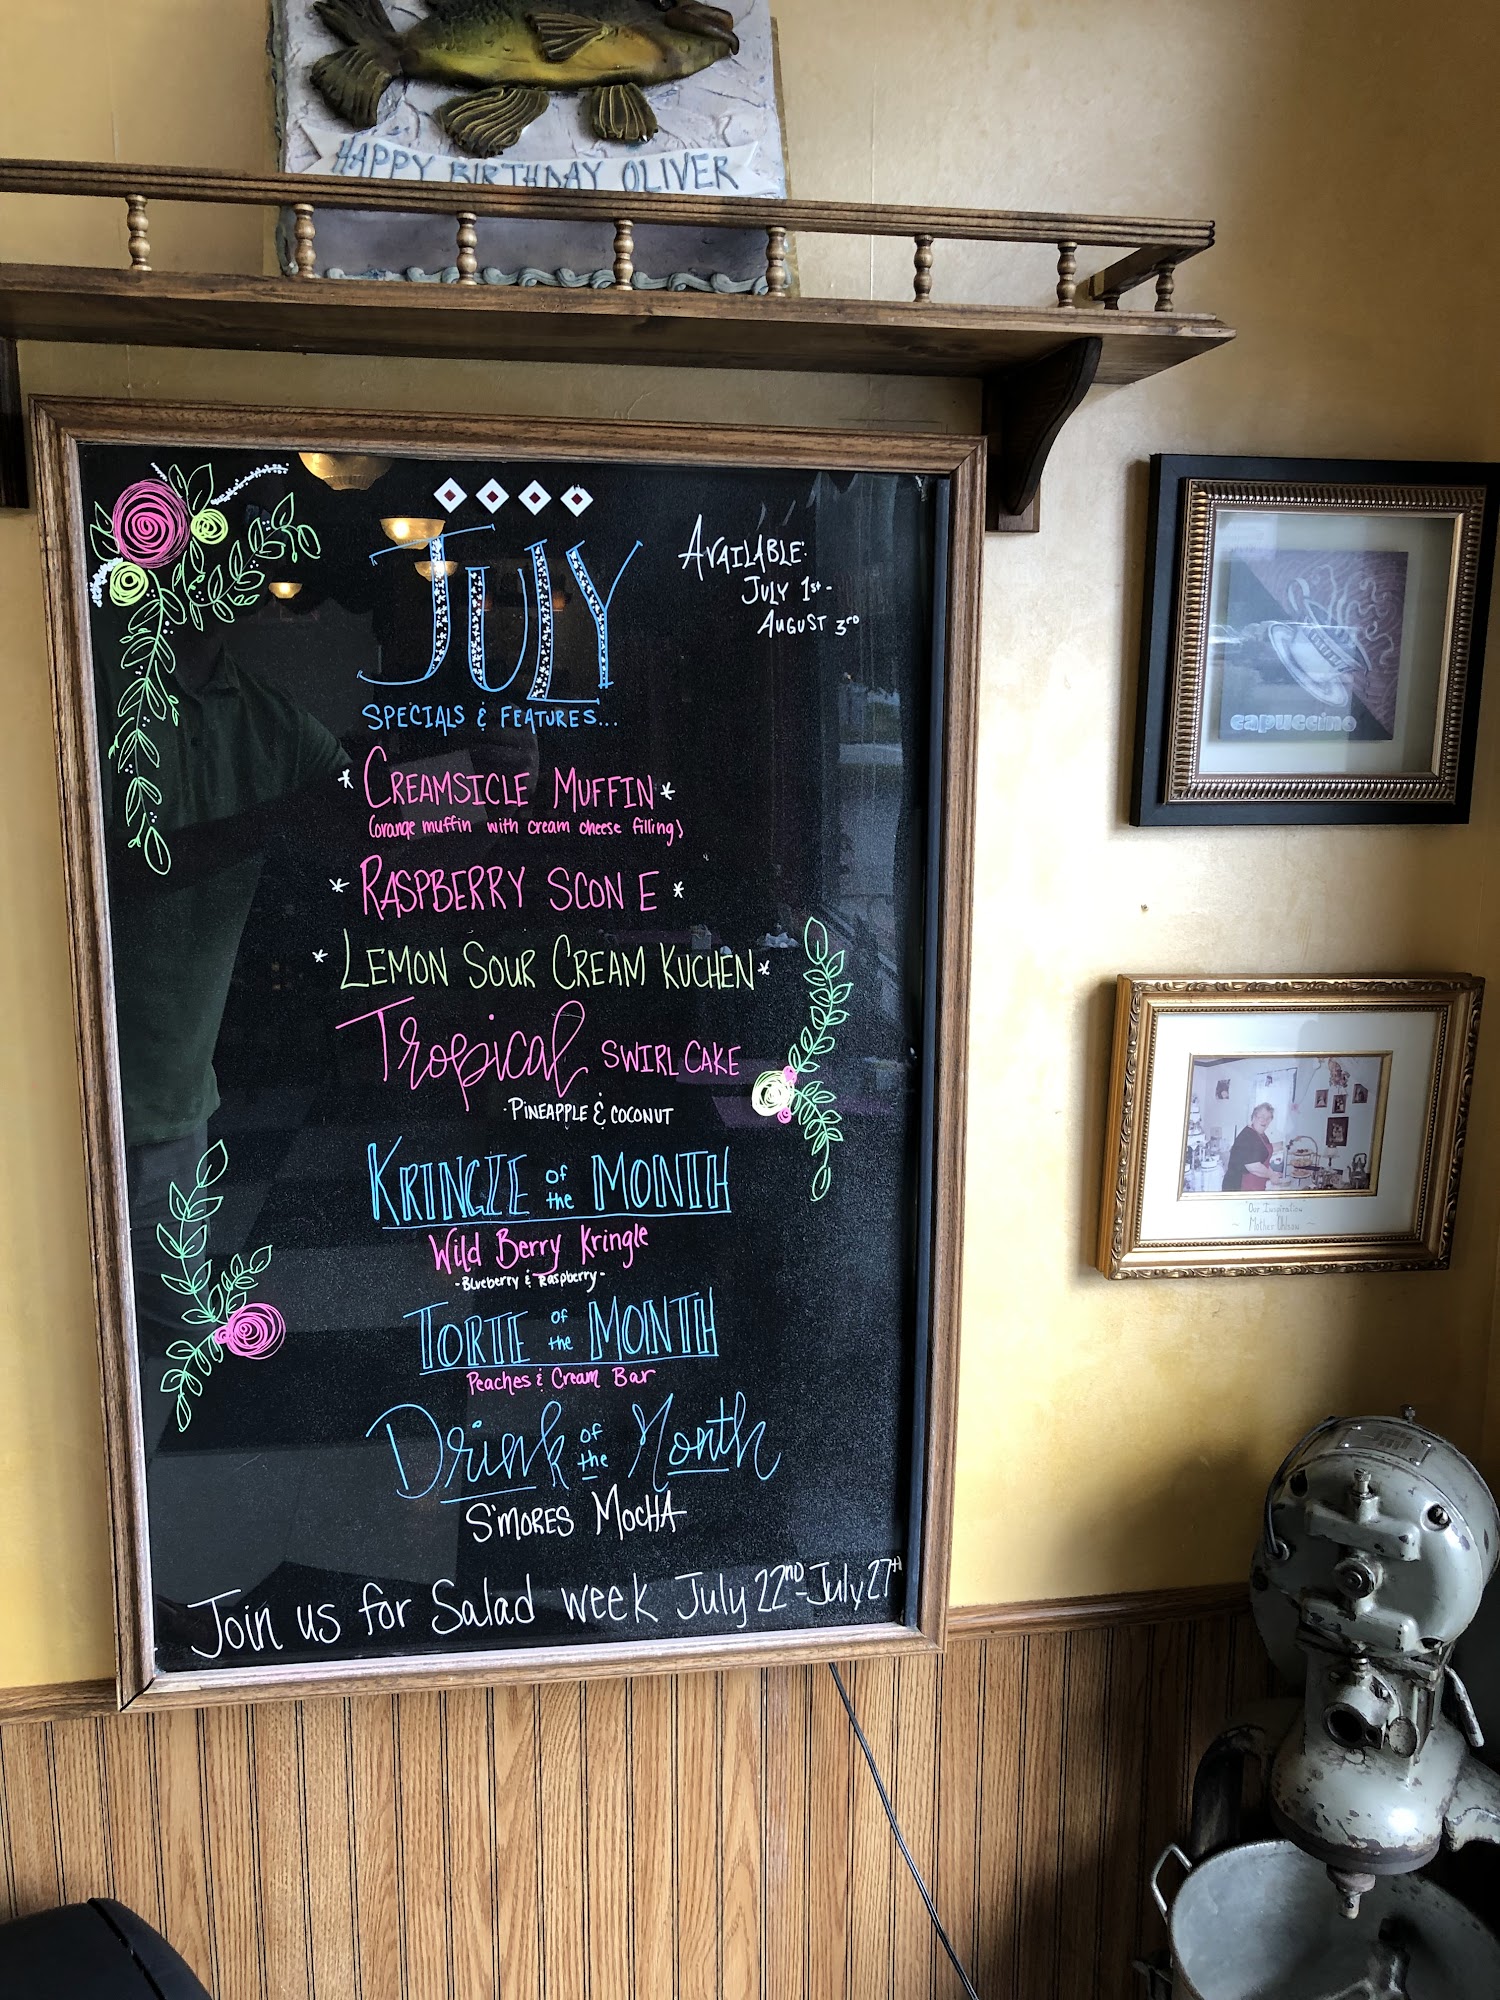 HAPPY BIRTHDAY OLIVER
JULY
SPECIALS & FEATURES...
AVAILABLE:
JULY 1st -
AUGUST 3RD
* CREAMSICLE MUFFIN *
(orange muffin with cream cheese filling)
* RASPBERRY SCONE *
* LEMON SOUR CREAM KUCHEN *
Tropical SWIRL CAKE
· PINEAPPLE & COCONUT
KRINGLE of the MONTH
Wild Berry Kringle
- Blueberry & Raspberry -
TORTE of the MONTH
Peaches & Cream Bar
Drink of the Month
S'MORES MOCHA
Join us for Salad week July 22ND - July 27TH
capuccino
"Our Inspiration
~ Mother Ohlson ~